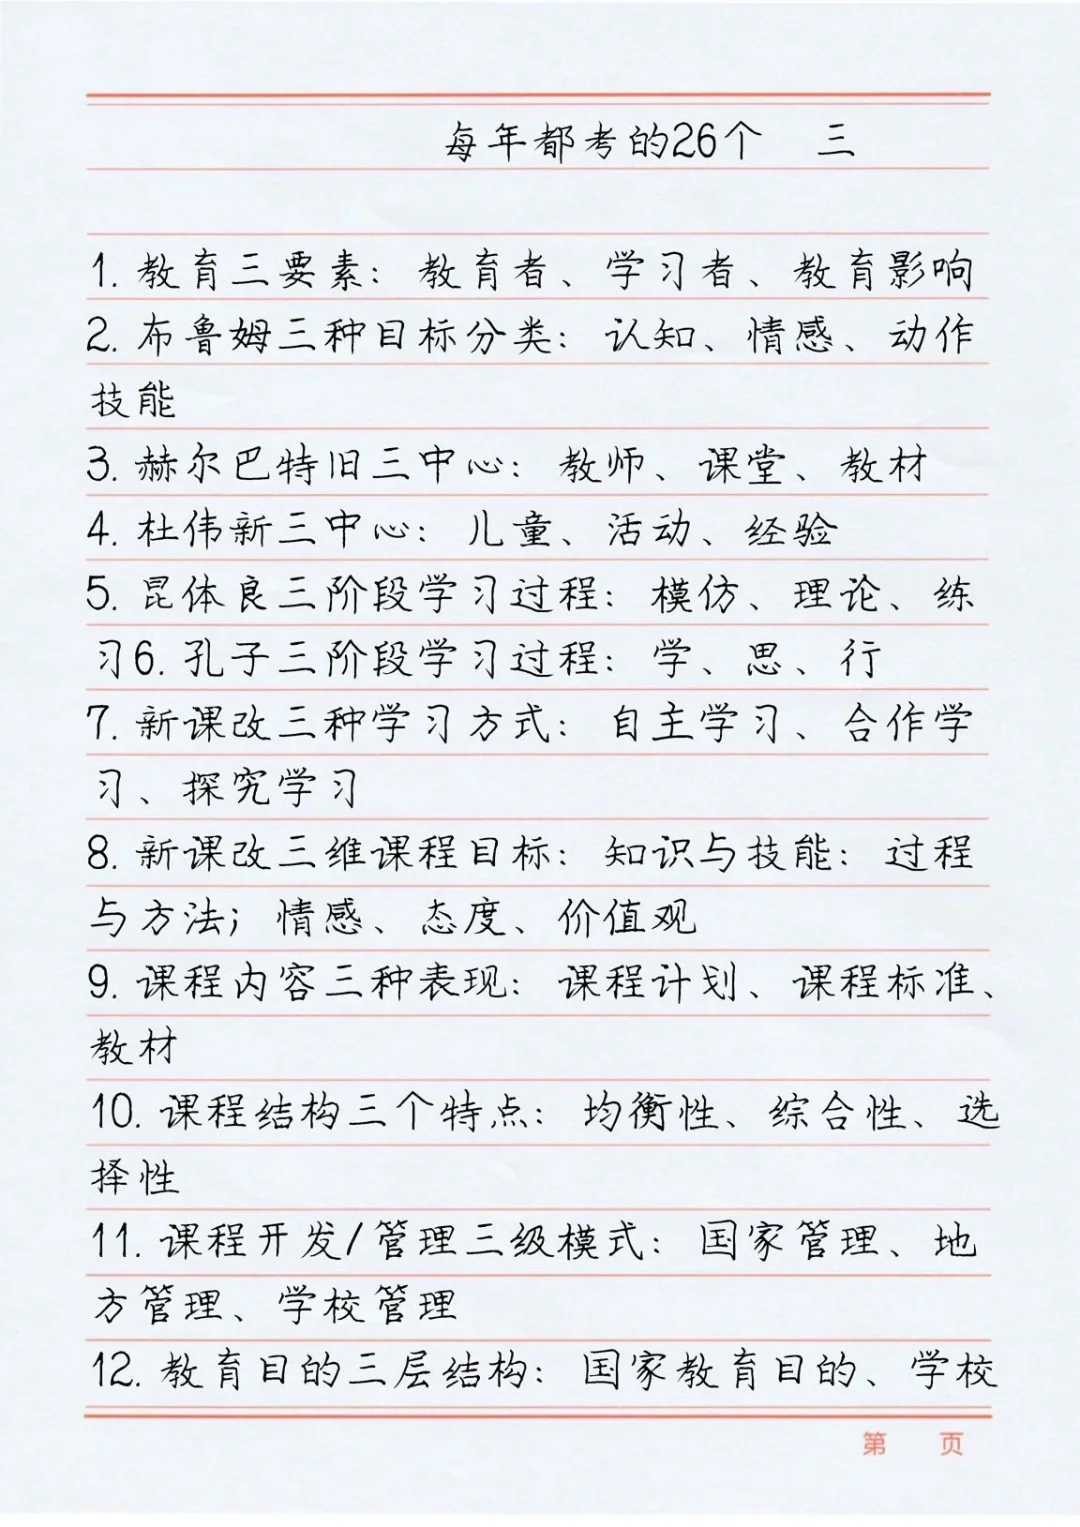 每年都考的26个 三
1. 教育三要素：教育者、学习者、教育影响
2. 布鲁姆三种目标分类：认知、情感、动作
技能
3. 赫尔巴特旧三中心：教师、课堂、教材
4. 杜伟新三中心：儿童、活动、经验
5. 昆体良三阶段学习过程：模仿、理论、练
习6. 孔子三阶段学习过程：学、思、行
7. 新课改三种学习方式：自主学习、合作学
习、探究学习
8. 新课改三维课程目标：知识与技能：过程
与方法；情感、态度、价值观
9. 课程内容三种表现：课程计划、课程标准、
教材
10. 课程结构三个特点：均衡性、综合性、选
择性
11. 课程开发/管理三级模式：国家管理、地
方管理、学校管理
12. 教育目的三层结构：国家教育目的、学校
第 页